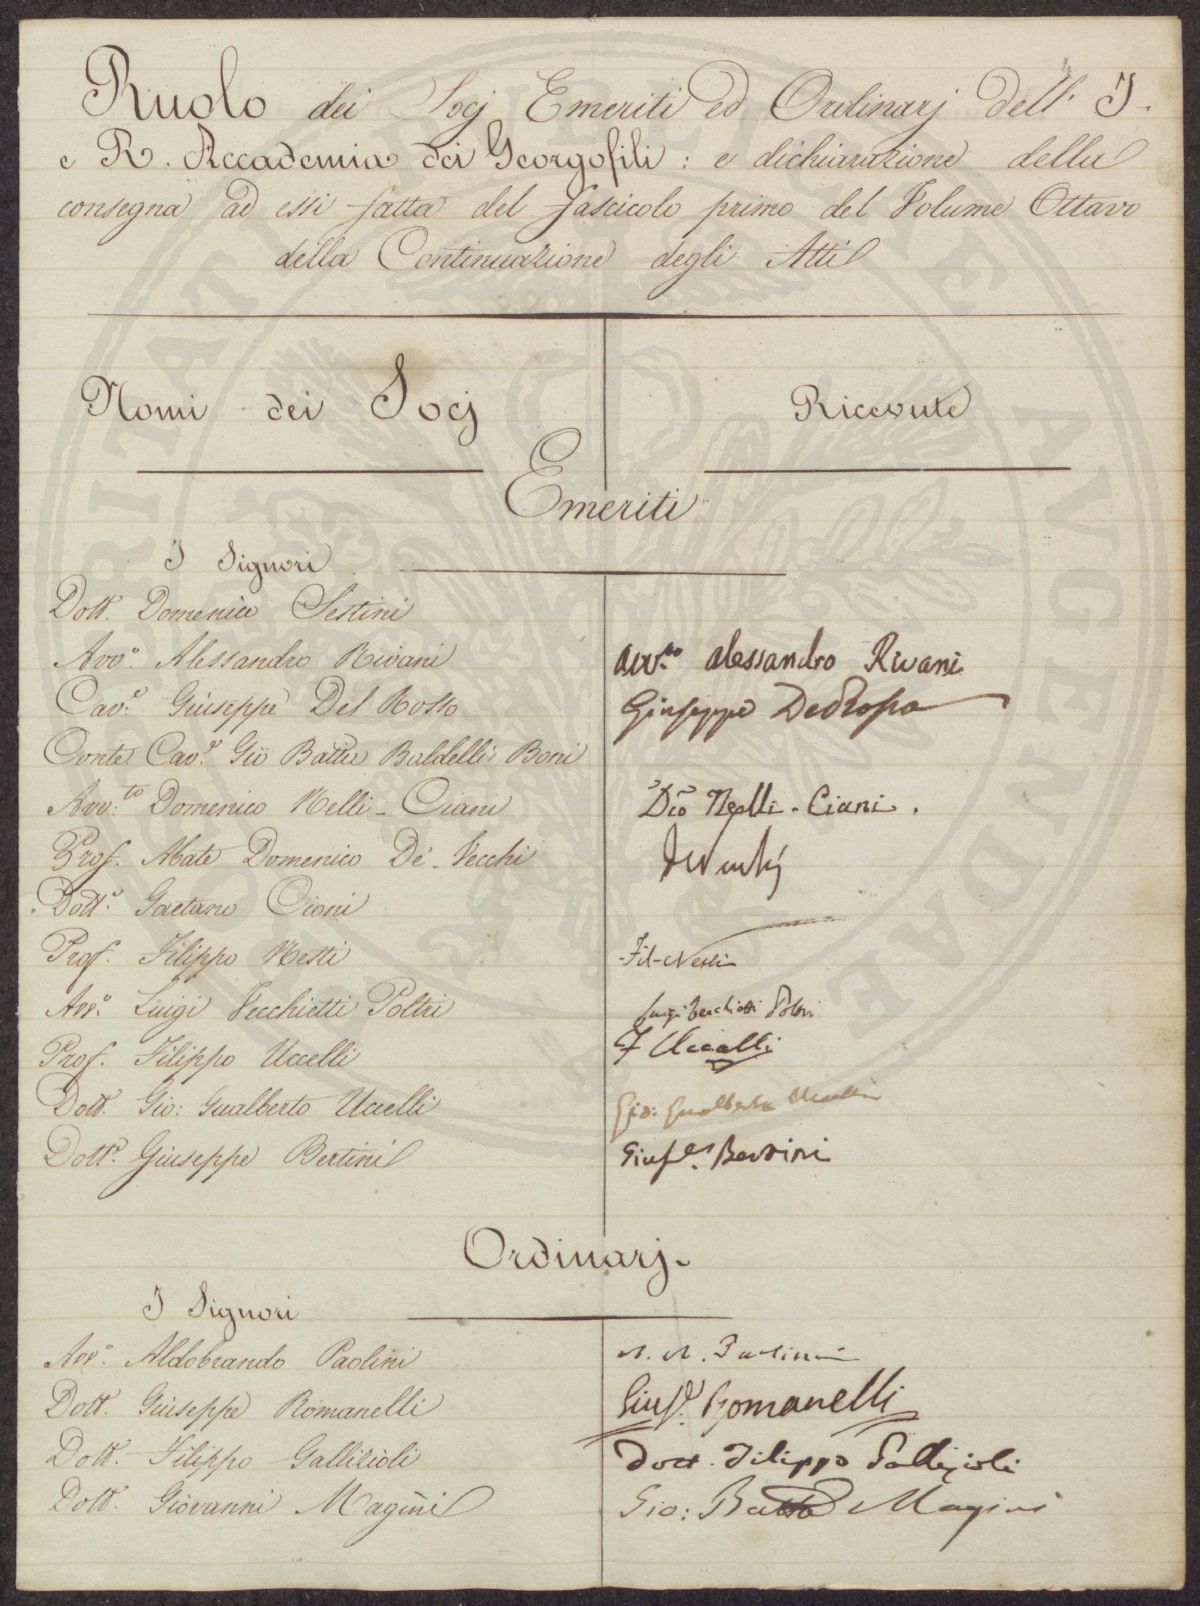 Ruolo dei Socj Emeriti ed Ordinarj dell' I.
e R. Accademia dei Georgofili : e dichiarazione della
consegna ad essi fatta del fascicolo primo del Volume Ottavo
della Continuazione degli Atti
Nomi dei Socj
Ricevute
Emeriti
I Signori
Dott. Domenico Sestini
Avv.o Alessandro Rivani
Avv.to Alessandro Rivani
Cav.e Giuseppe Del Rosso
Giuseppe Del Rosso
Conte Cav.e Gio Batta Baldelli Boni
Avv.to Domenico Nelli - Ciani
Dco Nelli - Ciani .
Prof. Abate Domenico De' Vecchi
Dott.e Gaetano Cioni
Prof. Filippo Nesti
Fil Nesti
Avv.o Luigi Vecchietti Poltri
Luigi Vecchietti Poltri
Prof. Filippo Uccelli
F Uccelli
Dott. Gio: Gualberto Uccelli
Gio: Gualberto Uccelli
Dott.e Giuseppe Bertini
Giuse. Bertini
Ordinarj.
I Signori
Avv.o Aldobrando Paolini
Dott. Giuseppe Romanelli
Giuse. Romanelli
Dott. Filippo Gallizioli
Dott. Filippo Gallizioli
Dott. Giovanni Magini
Gio: Batta Magini